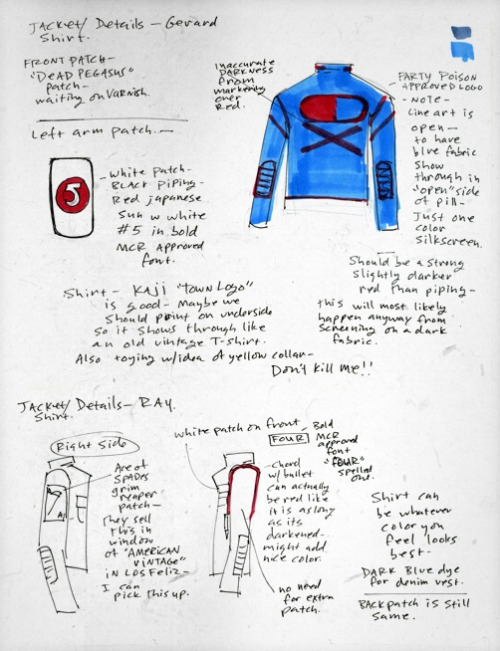 JACKET/ Details - Gerard
Shirt.
FRONT PATCH -
"DEAD PEGASUS"
patch -
waiting on Varnish.
Left arm patch. -
5
- White patch -
BLACK PIPING -
Red Japanese
Sun w white
#5 in bold
MCR approved
font.
Inaccurate
DARKNESS
from
markering
over
Red.
PARTY POISON
APPROVED LOGO
- NOTE -
Line art is
open -
to have
blue fabric
show
through in
"open" side
of pill -
Just one
color
silkscreen.
Should be a strong
slightly darker
red than piping -
this will most likely
happen anyway from
screening on a dark
fabric.
Shirt - KAJI "town Logo"
is good - maybe we
should print on underside
so it shows through like
an old vintage T-shirt.
Also toying w/idea of yellow collar -
Don't kill me!!
JACKET/ Details - RAY.
Shirt.
Right side
Ace of
SPADES
grim
reaper
patch -
They sell
this in
window
of "AMERICAN
VINTAGE"
in LOS Feliz -
I can
pick this up.
white patch on front
FOUR
- Bold
MCR
approved
font
"FOUR"
spelled
out.
- Chord
w/ bullet
can actually
be red like
it is as long
as its
darkened -
might add
nice color.
no need
for extra
patch.
Shirt can
be whatever
color you
feel looks
best -
DARK Blue dye
for denim vest.
BACK patch is still
same.